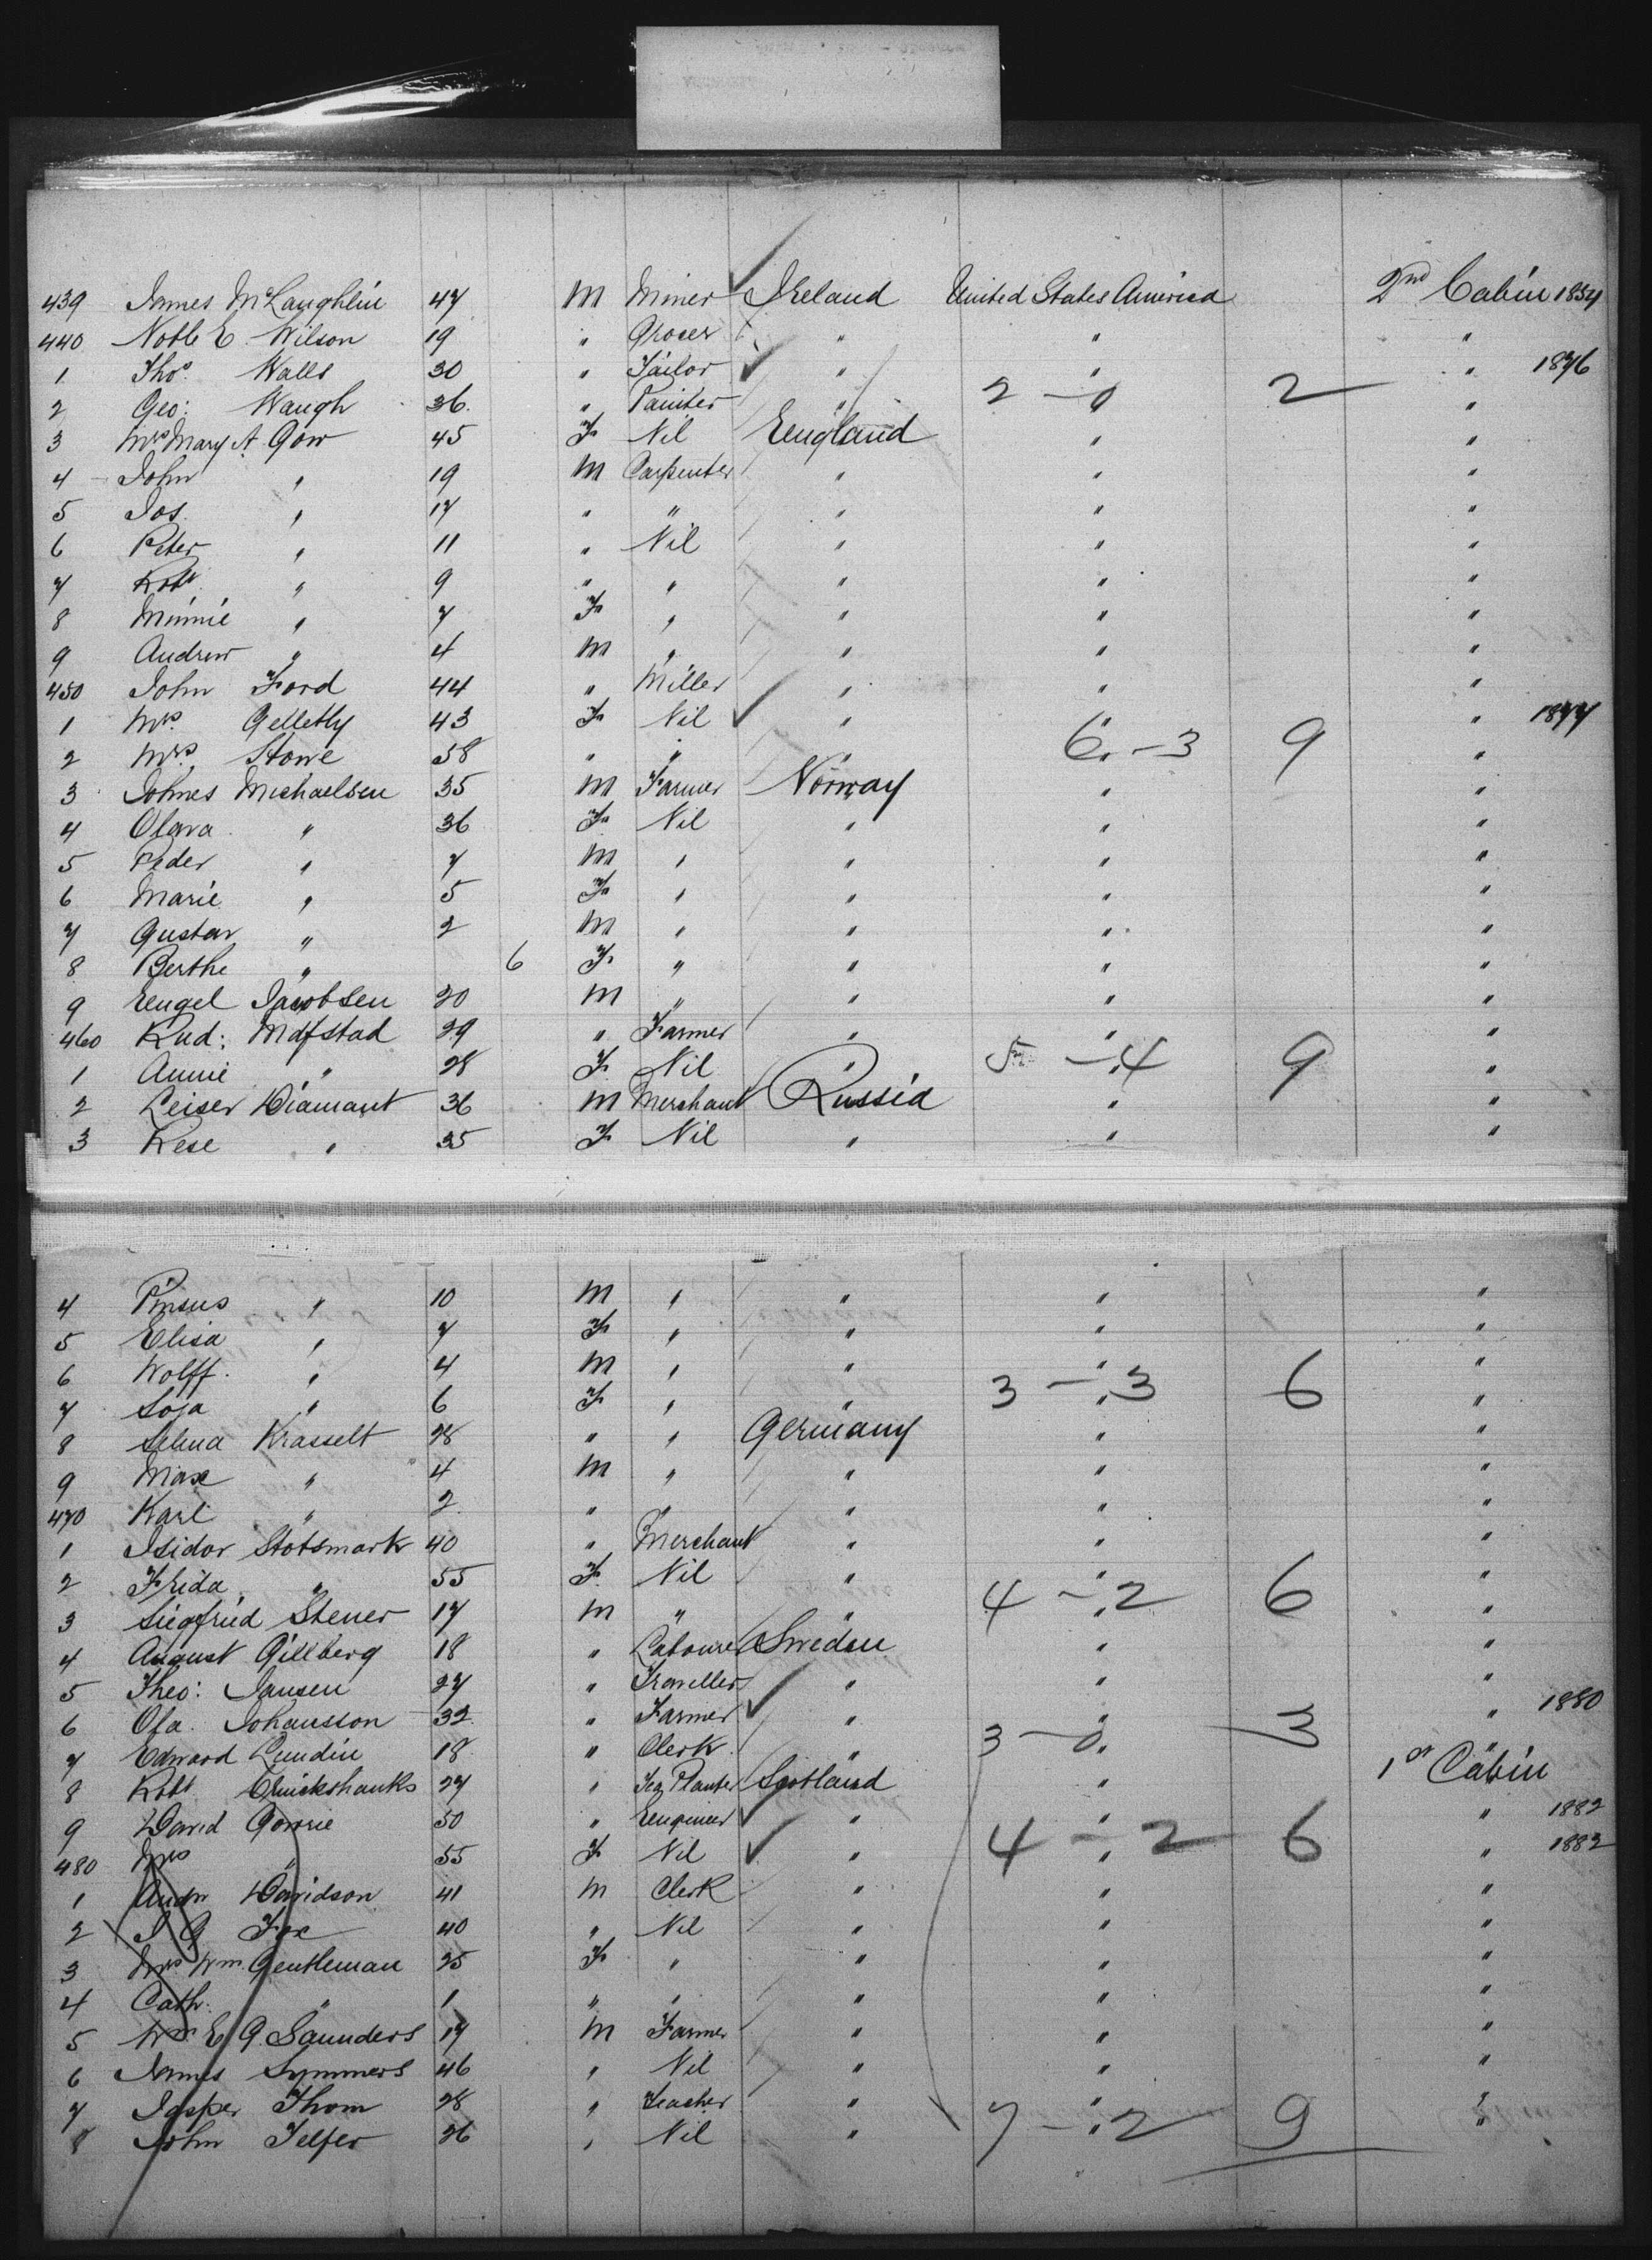 439 James McLaughlin 47 M Miner Ireland United States America 2nd Cabin 1854
440 Noble E Wilson 19 " Grocer " " "
1 Thos. Walls 30 " Tailor " " " 1876
2 Geo: Waugh 36 " Painter " 2 - 0 2 "
3 Mrs Mary A Gow 45 F Nil England " "
4 John " 19 M Carpenter " " "
5 Jos. " 17 " " " " "
6 Peter " 11 " Nil " " "
7 Robt. " 9 " " " " "
8 Minnie " 7 F " " " "
9 Andrew " 4 M " " " "
450 John Ford 44 " Miller " " "
1 Mrs. Gelletly 43 F Nil " " " 1877
2 Mrs. Stowe 58 " " " 6 - 3 9 "
3 Johnes Michaelsen 35 M Farmer Norway " "
4 Olava " 36 F Nil " " "
5 Peder " 7 M " " " "
6 Marie " 5 F " " " "
7 Gustav " 2 M " " " "
8 Berthe " 6 F " " " "
9 Engel Jacobsen 20 M " " " "
460 Rud: 29 " Farmer " " "
1 Annie " 28 F Nil " 5 - 4 9 "
2 Leiser Diamant 36 M Merchant Russia " "
3 Rese " 35 F Nil " " "
4 Pinsus " 10 M " " " "
5 Elisa " 7 F " " " "
6 Wolff " 4 M " " " "
7 Soja " 6 F " " 3 - 3 6 "
8 Selma Krasselt 28 " " Germany " "
9 Max " 4 M " " " "
470 Karl " 2 " " " " "
1 Isidor Stotsmark 40 " Merchant " " "
2 Frida " 55 F Nil " " "
3 Siegfried Stener 17 M " " 4 - 2 6 "
4 August Gillberg 18 " Labourer Sweden " "
5 Theo: Jansen 27 " Traveller " " "
6 Ola Johansson 32 " Farmer " " " 1880
7 Edward Lundin 18 " Clerk " 3 - 0 3 "
8 Robt Cruickshanks 27 " Tea Planter Scotland " 1st Cabin
9 David Gowrie 50 " Engineer " " " 1882
480 Mrs " 55 F Nil " 4 - 2 6 " 1882
1 Andw Davidson 41 M Clerk " " "
2 J G Fox 40 " Nil " " "
3 Mrs Wm. Gentleman 25 F " " " "
4 Cath: " 1 " " " " "
5 Wm E G Saunders 17 M Farmer " " "
6 James Symmers 46 " Nil " " "
7 Jasper Thom 28 " Teacher " " "
8 John Telfer 26 " Nil " 7 - 2 9 "